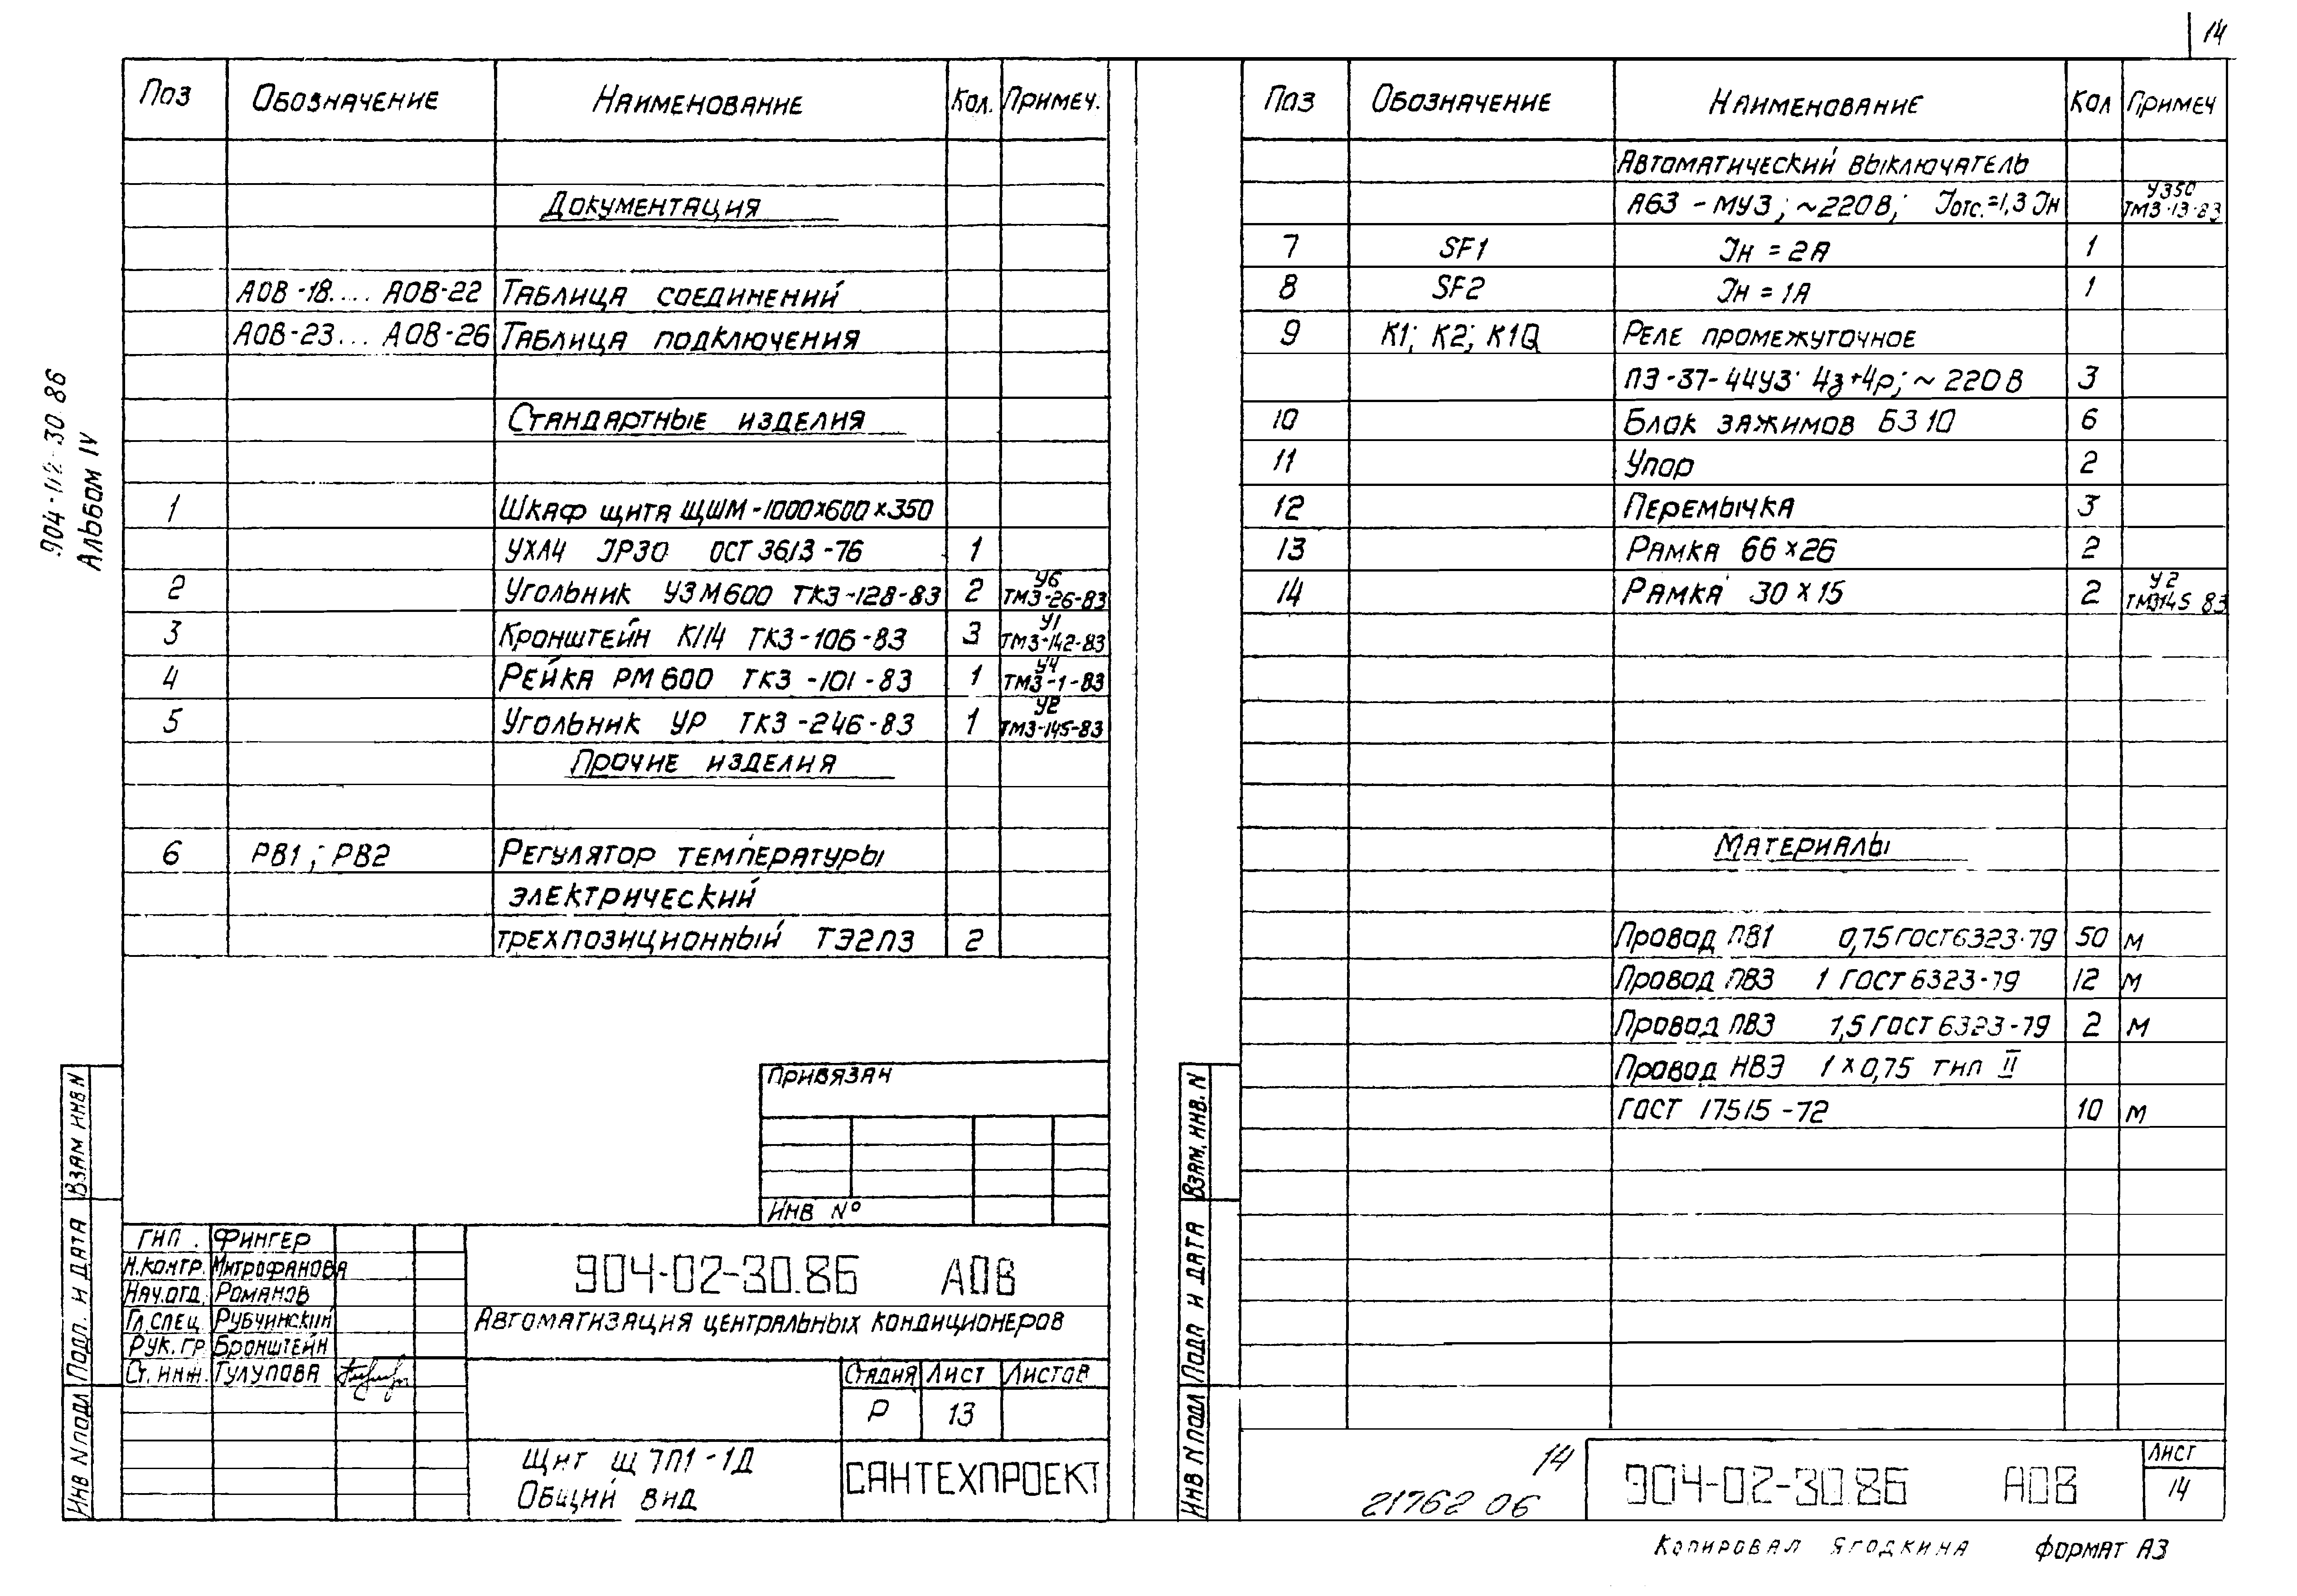 14
904-02-30.86
Альбом IV
Поз Обозначение Наименование Кол. Примеч.
Документация
АОВ-18.... АОВ-22 Таблица соединений
АОВ-23... АОВ-26 Таблица подключения
Стандартные изделия
1 Шкаф щита ЩШМ-1000х600х350
УХЛ4 IP30 ОСТ 36.13-76 1
2 Угольник УЗМ600 ТК3-128-83 2 У6 ТМ3-26-83
3 Кронштейн К114 ТК3-106-83 3 У1 ТМ3-142-83
4 Рейка РМ600 ТК3-101-83 1 У4 ТМ3-1-83
5 Угольник УР ТК3-246-83 1 У2 ТМ3-145-83
Прочие изделия
6 РВ1; РВ2 Регулятор температуры
электрический
трехпозиционный ТЭ2П3 2
Привязан
Инв №
ГИП. Фингер
Н.контр. Митрофанова
Нач.отд. Романов
Гл.спец Рубчинский
Рук.гр Бронштейн
Ст.инж. Тулупова
904-02-30.86 АОВ
Автоматизация центральных кондиционеров
Стадия Лист Листов
Р 13
Щит Щ7П1-1Д
Общий вид
САНТЕХПРОЕКТ
Взам инв.N
Подп. и дата
Инв N подл
Поз Обозначение Наименование Кол Примеч
Автоматический выключатель
А63-МУ3; ~220В; Iотс.=1,3 Iн У350 ТМ3-13-83
7 SF1 Iн = 2А 1
8 SF2 Iн = 1А 1
9 К1; К2; К1Q Реле промежуточное
ПЭ-37-44У3 4з+4р; ~220В 3
10 Блок зажимов БЗ 10 6
11 Упор 2
12 Перемычка 3
13 Рамка 66х26 2
14 Рамка 30х15 2 У2 ТМ3145 83
Материалы
Провод ПВ1 0,75 ГОСТ 6323-79 50 м
Провод ПВ3 1 ГОСТ 6323-79 12 м
Провод ПВ3 1,5 ГОСТ 6323-79 2 м
Провод НВЭ 1х0,75 тип II
ГОСТ 17515-72 10 м
Взам. инв. N
Подп и дата
Инв N подл
14
21762 06
904-02-30.86 АОВ
Лист
14
Копировал Ягодкина формат А3